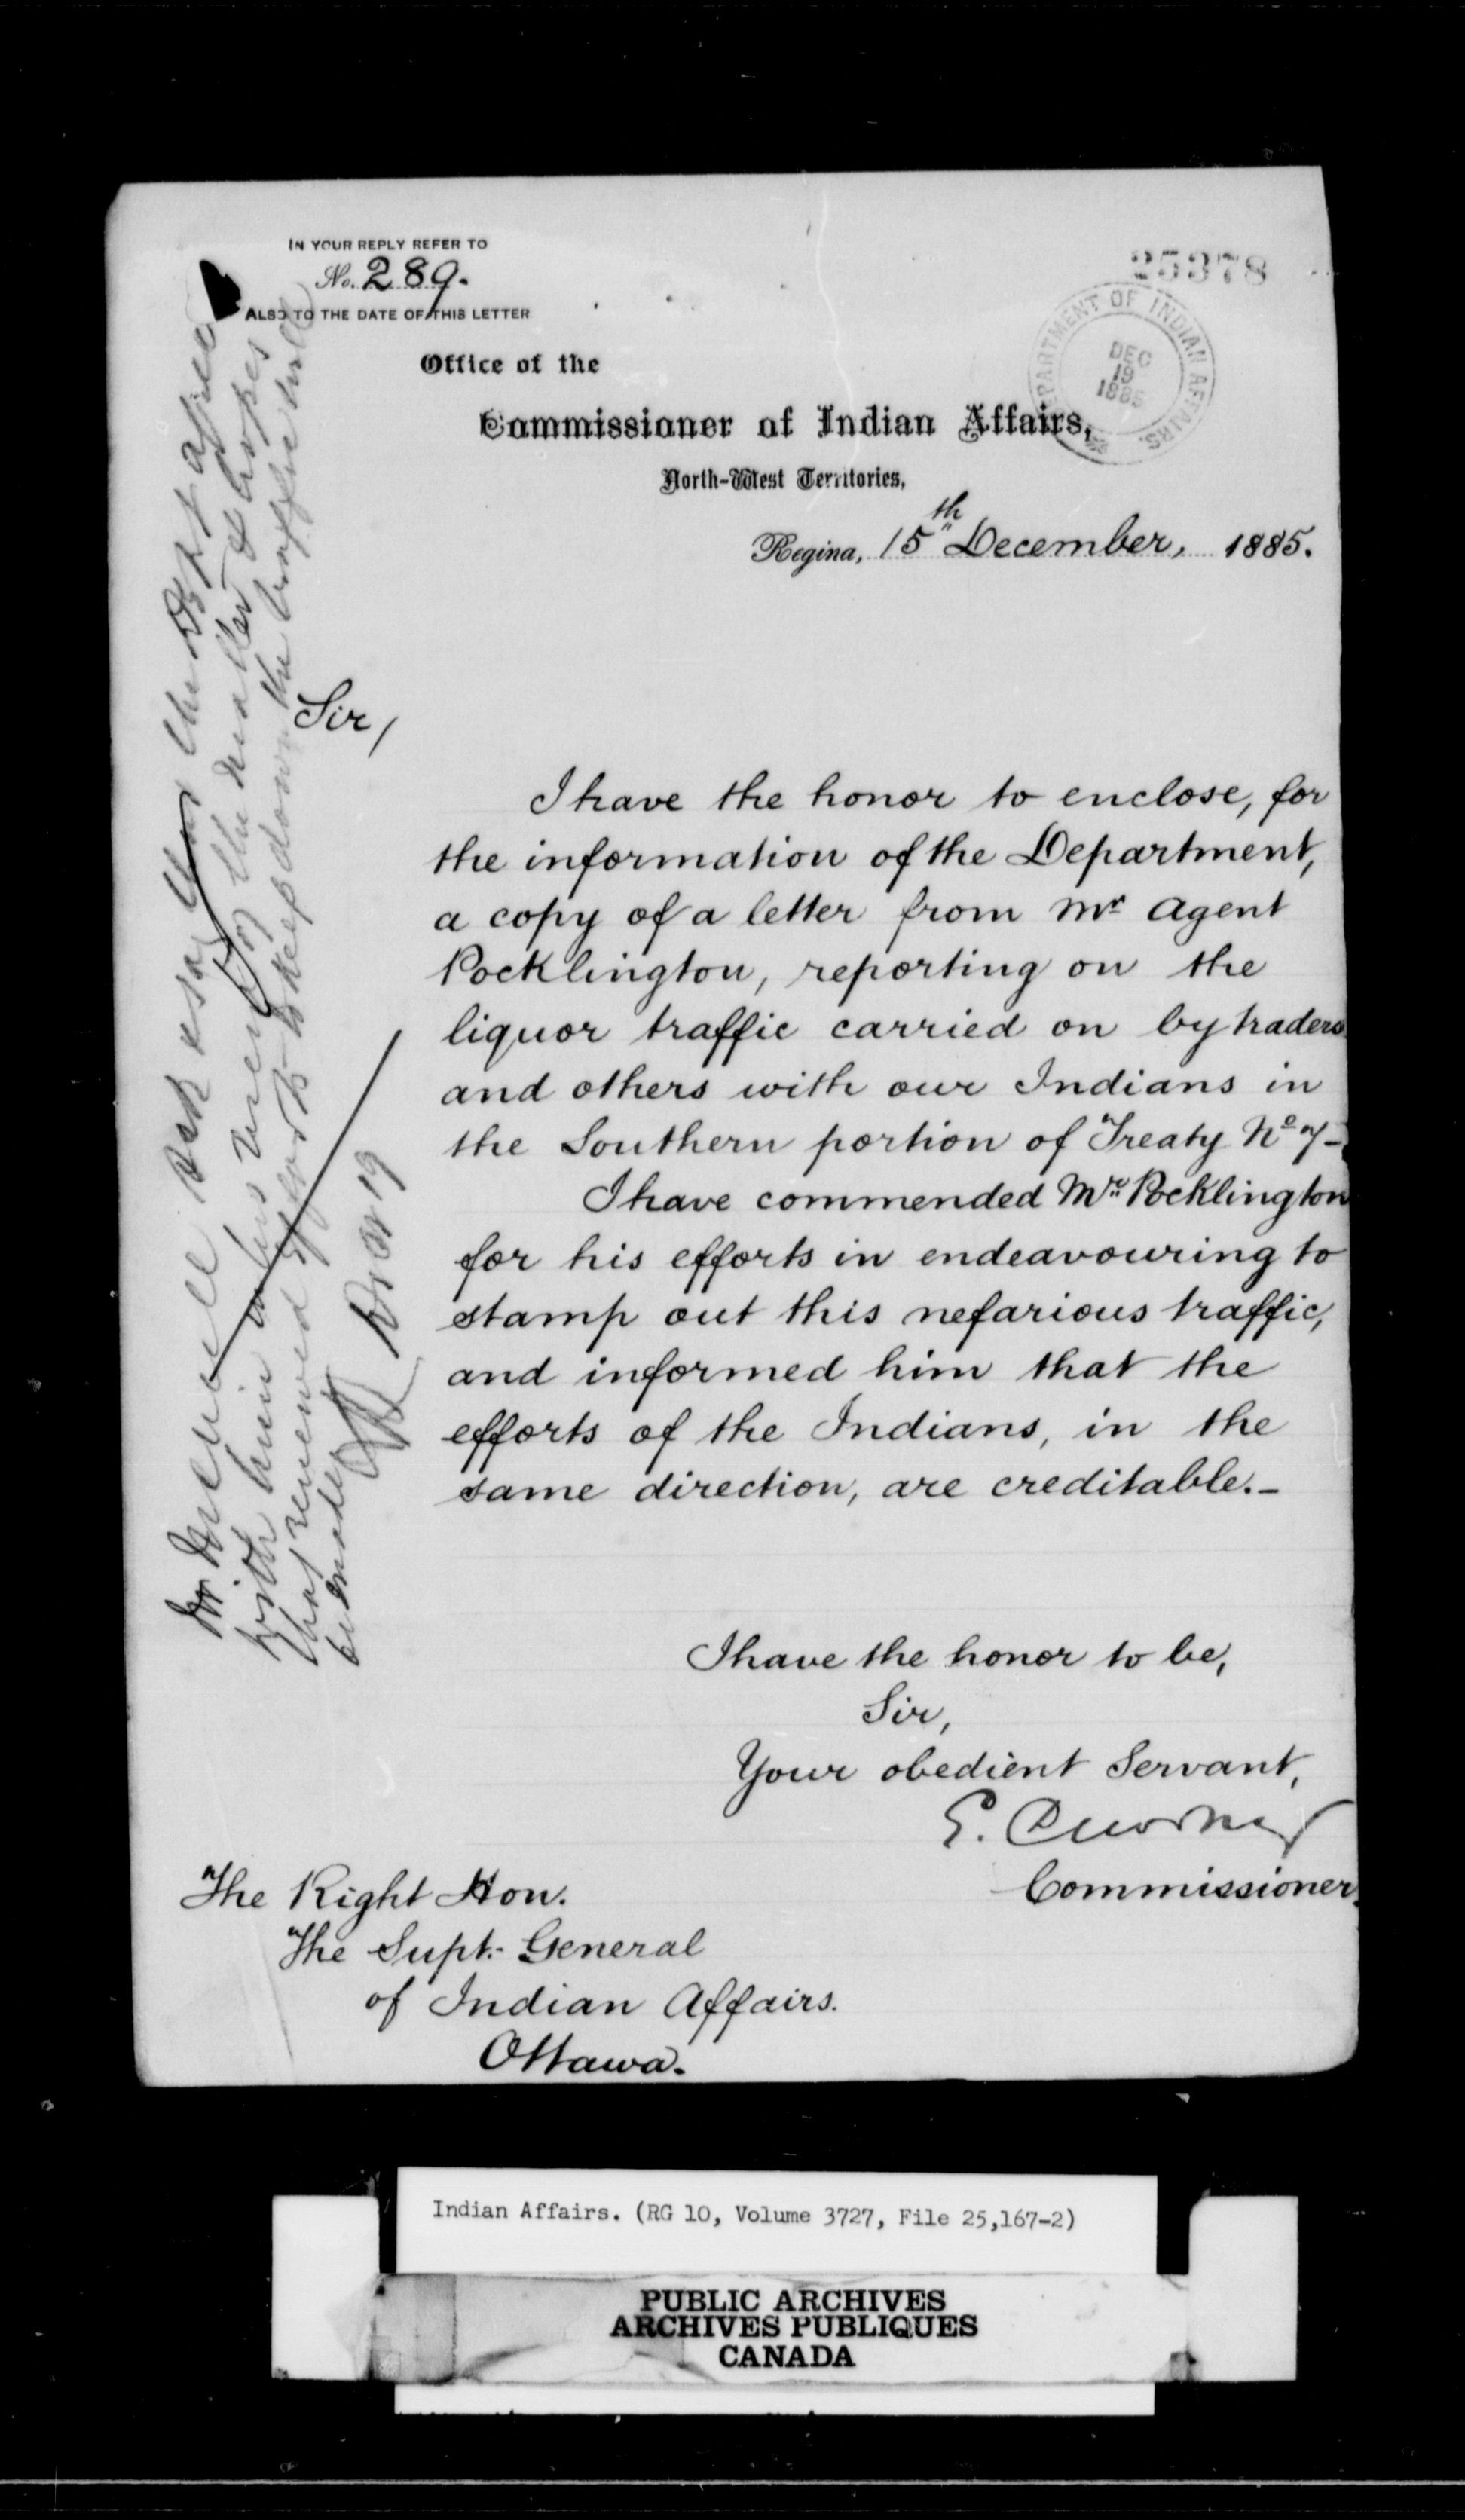 IN YOUR REPLY REFER TO
No. 289.
ALSO TO THE DATE OF THIS LETTER
25378
DEPARTMENT OF INDIAN AFFAIRS.
DEC
19
1885
Office of the
Commissioner of Indian Affairs,
North-West Territories,
Regina, 15th December, 1885.
Sir,
I have the honor to enclose, for
the information of the Department,
a copy of a letter from Mr Agent
Pocklington, reporting on the
liquor traffic carried on by traders
and others with our Indians in
the Southern portion of Treaty No 7 -
I have commended Mr. Pocklington
for his efforts in endeavouring to
stamp out this nefarious traffic,
and informed him that the
efforts of the Indians, in the
same direction, are creditable. -
I have the honor to be,
Sir,
Your obedient Servant,
E. Dewdney
Commissioner.
The Right Hon.
The Supt.- General
of Indian Affairs.
Ottawa.
Mr say that the Dept agree
with him in his view of the matter & hopes
that renewed efforts to keep down the traffic will
be made
19
Indian Affairs. (RG 10, Volume 3727, File 25,167-2)
PUBLIC ARCHIVES
ARCHIVES PUBLIQUES
CANADA